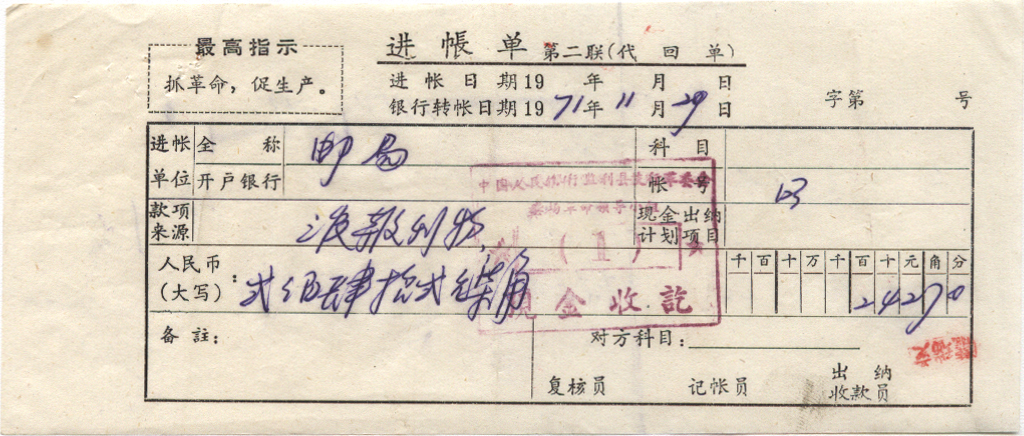 最高指示
抓革命，促生产。
进帐单 第二联(代回单)
进帐日期19 年 月 日
银行转帐日期1971年11月29日
字第 号
进帐单位 全称 邮局
科目
开户银行
帐号
中国人民银行监利县
款项来源 报刊
现金出纳计划项目
(1)
人民币(大写)： 弍佰肆拾弍元柒角
千百十万千百十元角分
24270
现金收訖
备註：
对方科目：
复核员 记帐员 出纳收款员